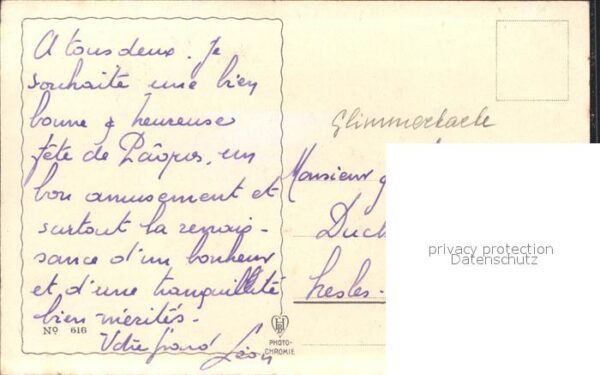 A tous deux. Je
souhaite une bien
bonne & heureuse
fête de Pâques, un
bon amusement et
surtout la renais-
sance d'un bonheur
et d'une tranquillité
bien mérités.
Votre
Léon
No 616
PHOTO-
CHROMIE
Glimmerkarte
Monsieur
Duch
hesles-
privacy protection
Datenschutz